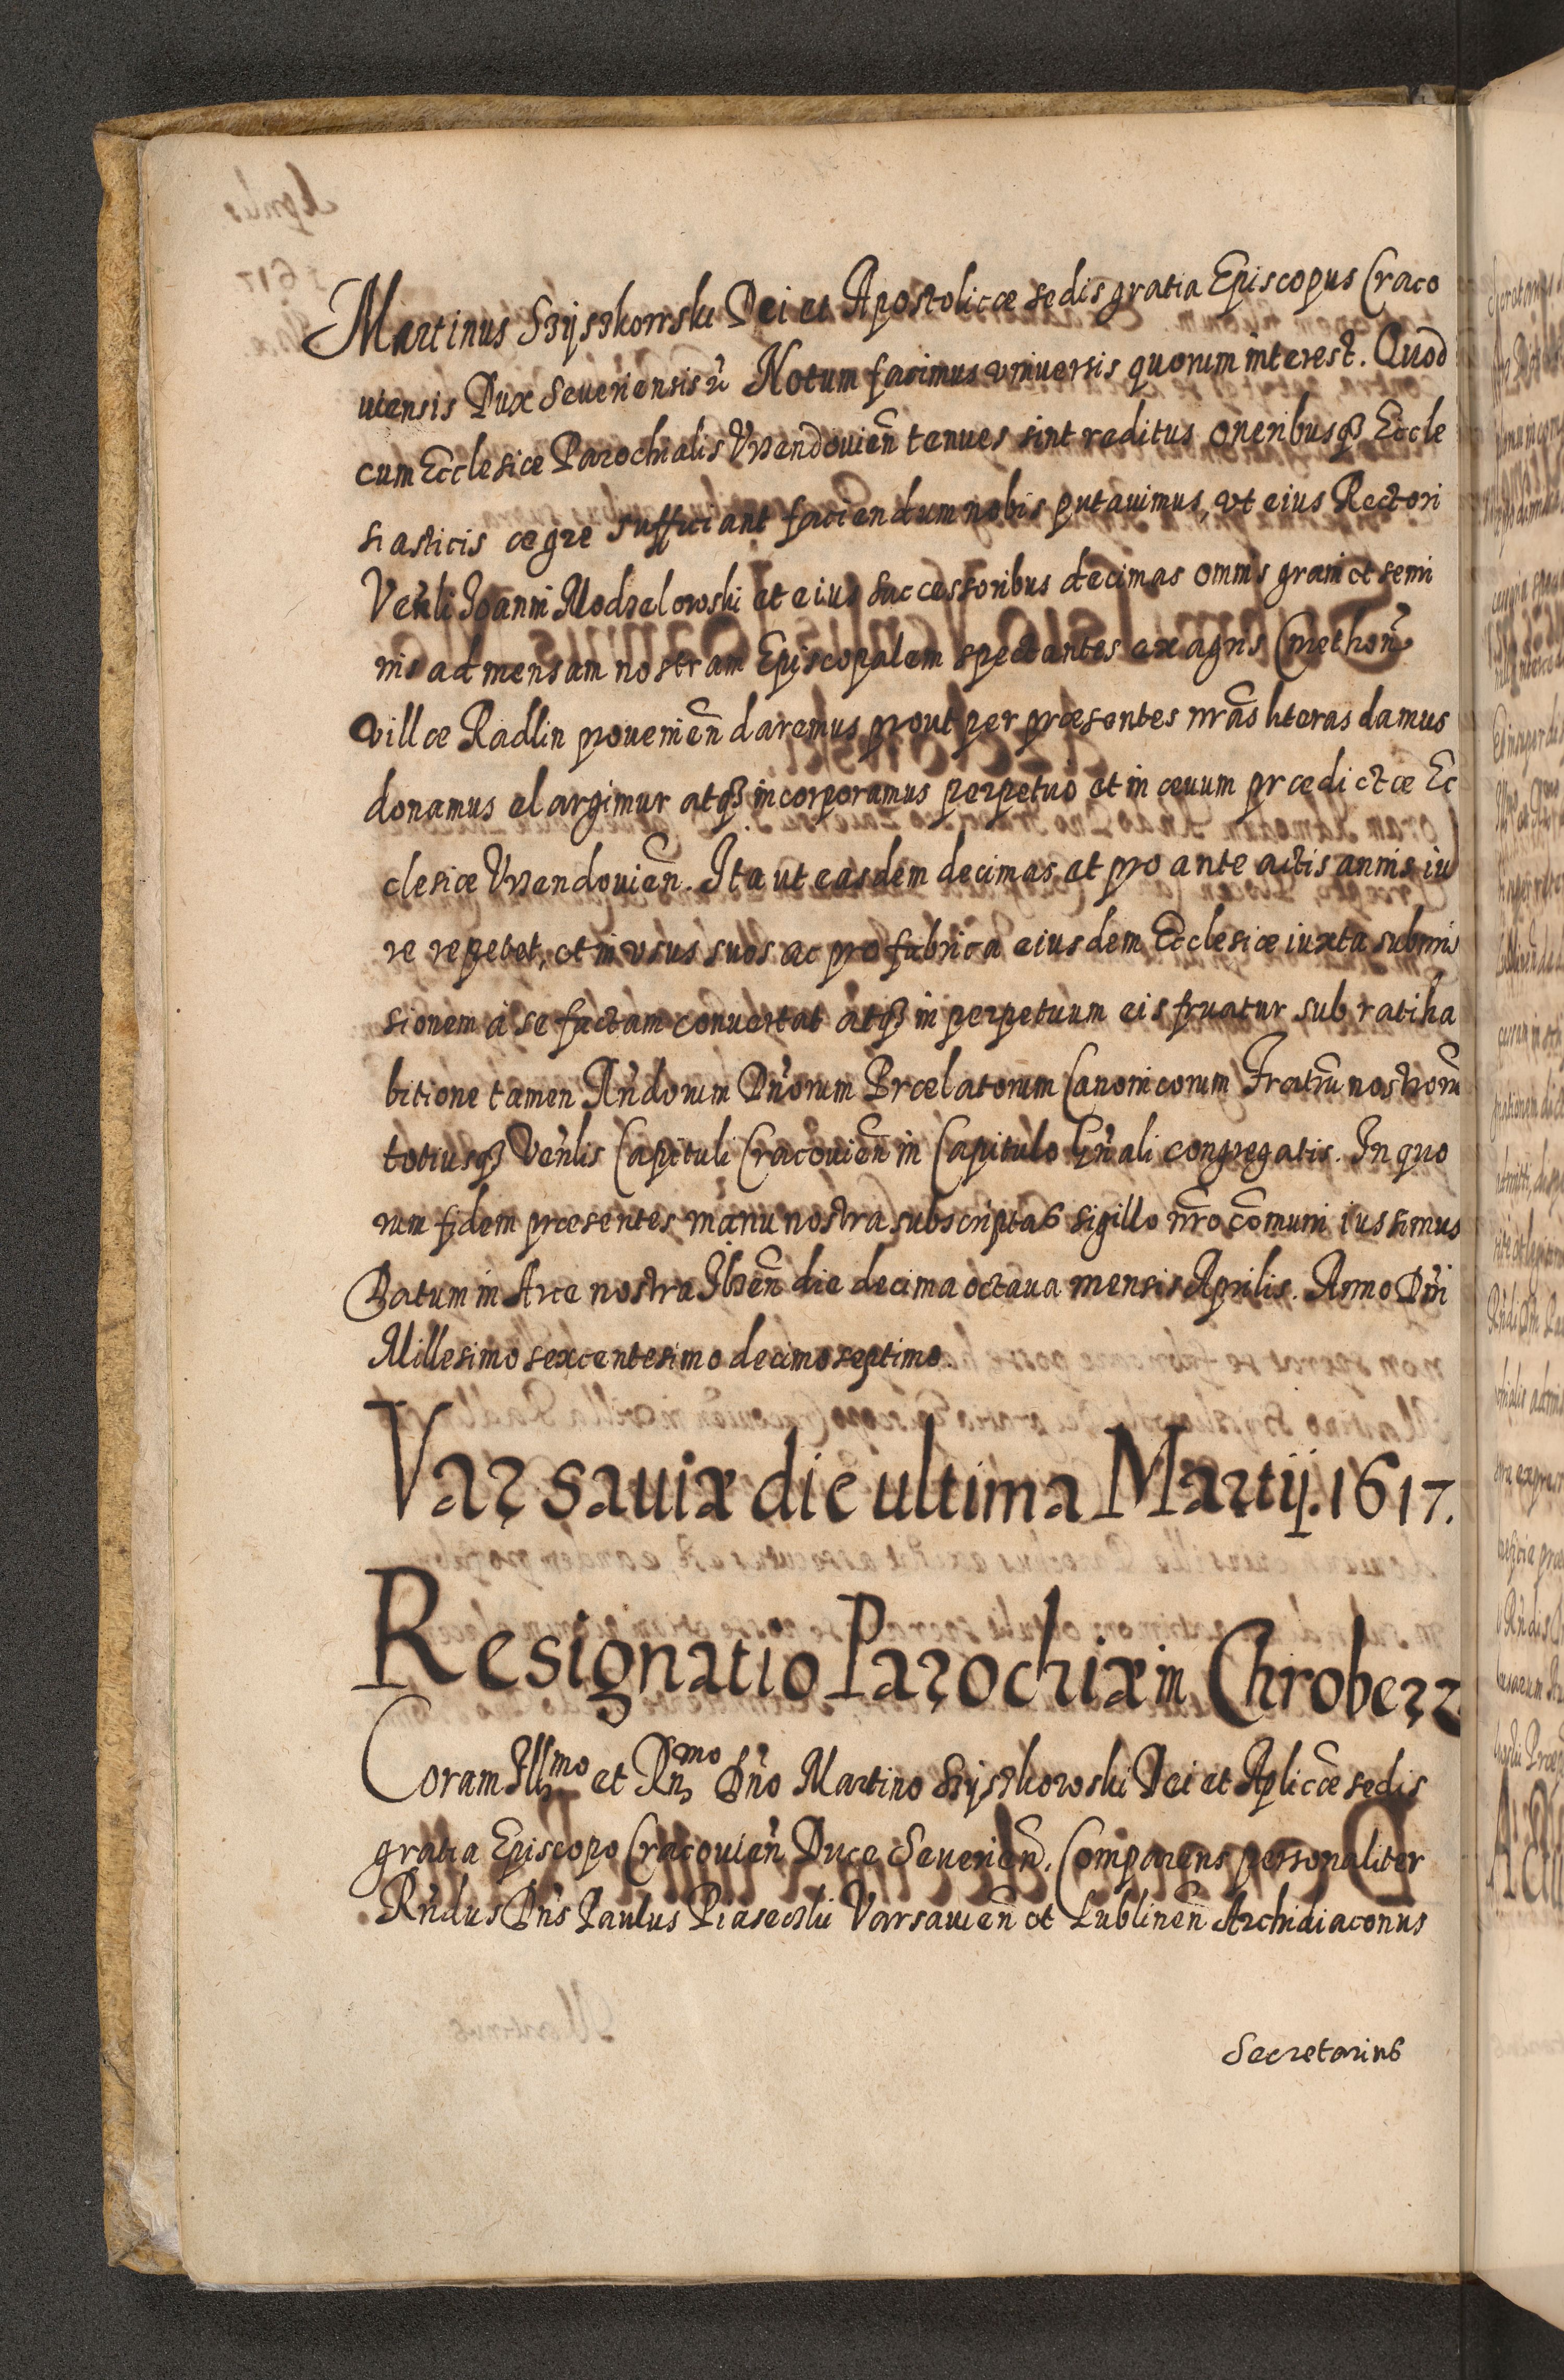 Martinus Szyszkowski Dei et Apostolicæ sedis gratia Episcopus Craco
uiensis Dux Seueriensis Notum facimus vniuersis quorum interest. Quod
cum Ecclesiæ Parochialis Vrzendouien̄ tenues sint reditus oneribusqȝ Eccle
siasticis ægre sufficiant faciendum nobis putauimus, vt eius Rectori
Ven̄li Joanni Modzelowski et eius successoribus decimas omnis grani et semi
nis ad mensam nostram Episcopalem spectantes ex agris Cmethon̄
villæ Radlin prouenien̄ daremus prout per præsentes nr̄as literas damus
donamus elargimur atqȝ incorporamus perpetuo et in æuum prædictæ Ec
clesiæ Vrzendouien̄. Ita ut easdem decimas et pro ante actis annis iu
re repetet, et in vsus suos ac pro fabrica eiusdem Ecclesiæ iuxta submis
sionem à se factam conuertat atqȝ in perpetuum eis fruatur sub ratiha
bitione tamen Rn̄dorum Dn̄orum Prælatorum Canonicorum Fratrū nostrorū
totiusqȝ Ven̄lis Capituli Cracouien̄ in Capitulo Gn̄ali congregatis. In quo
rum fidem præsentes manu nostra subscriptas sigillo nr̄o com̄uni iussimus
Datum in Arce nostra Ilzen̄ die decima octaua mensis Aprilis. Anno Dn̄i
Millesimo sexcentesimo decimo septimo.
Varsauiæ die ultima Martij. 1617.
Resignatio Parochiæ in Chroberz
Coram Illmo et Rnmo Dn̄o Martino Szyszkowski Dei et Aplicæ sedis
gratia Episcopo Cracouien̄ Duce Seuerien̄. Comparens personaliter
Rn̄dus Dn̄s Paulus Piasecki Varsauien̄ et Lublinen̄ Archidiaconus
Secretarius